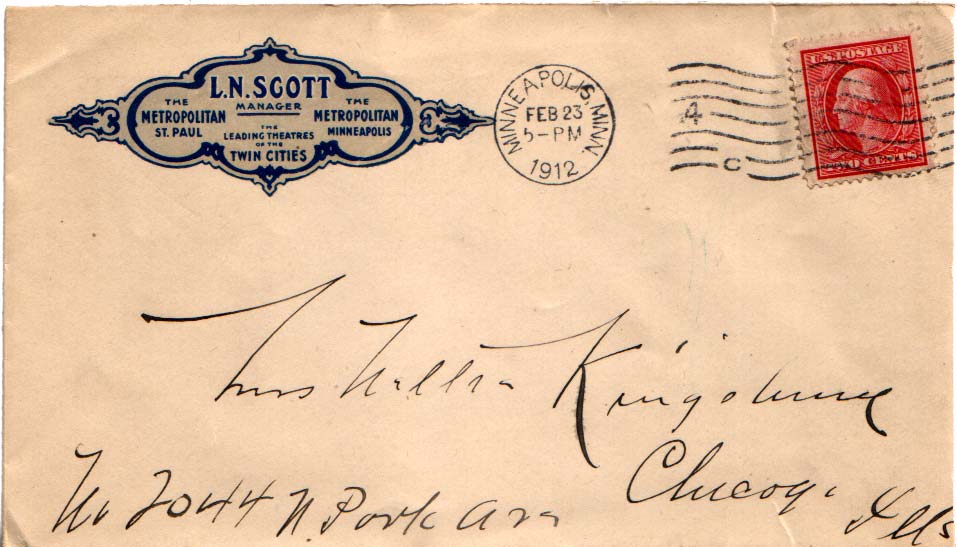 L.N. SCOTT
MANAGER
THE METROPOLITAN ST. PAUL
THE METROPOLITAN MINNEAPOLIS
THE LEADING THEATRES OF THE TWIN CITIES
MINNEAPOLIS MINN
FEB 23
5-PM
1912
4
C
U.S. POSTAGE
TWO CENTS
Kingsbury
No 2044 N. Park Ave
Chicago
Ills